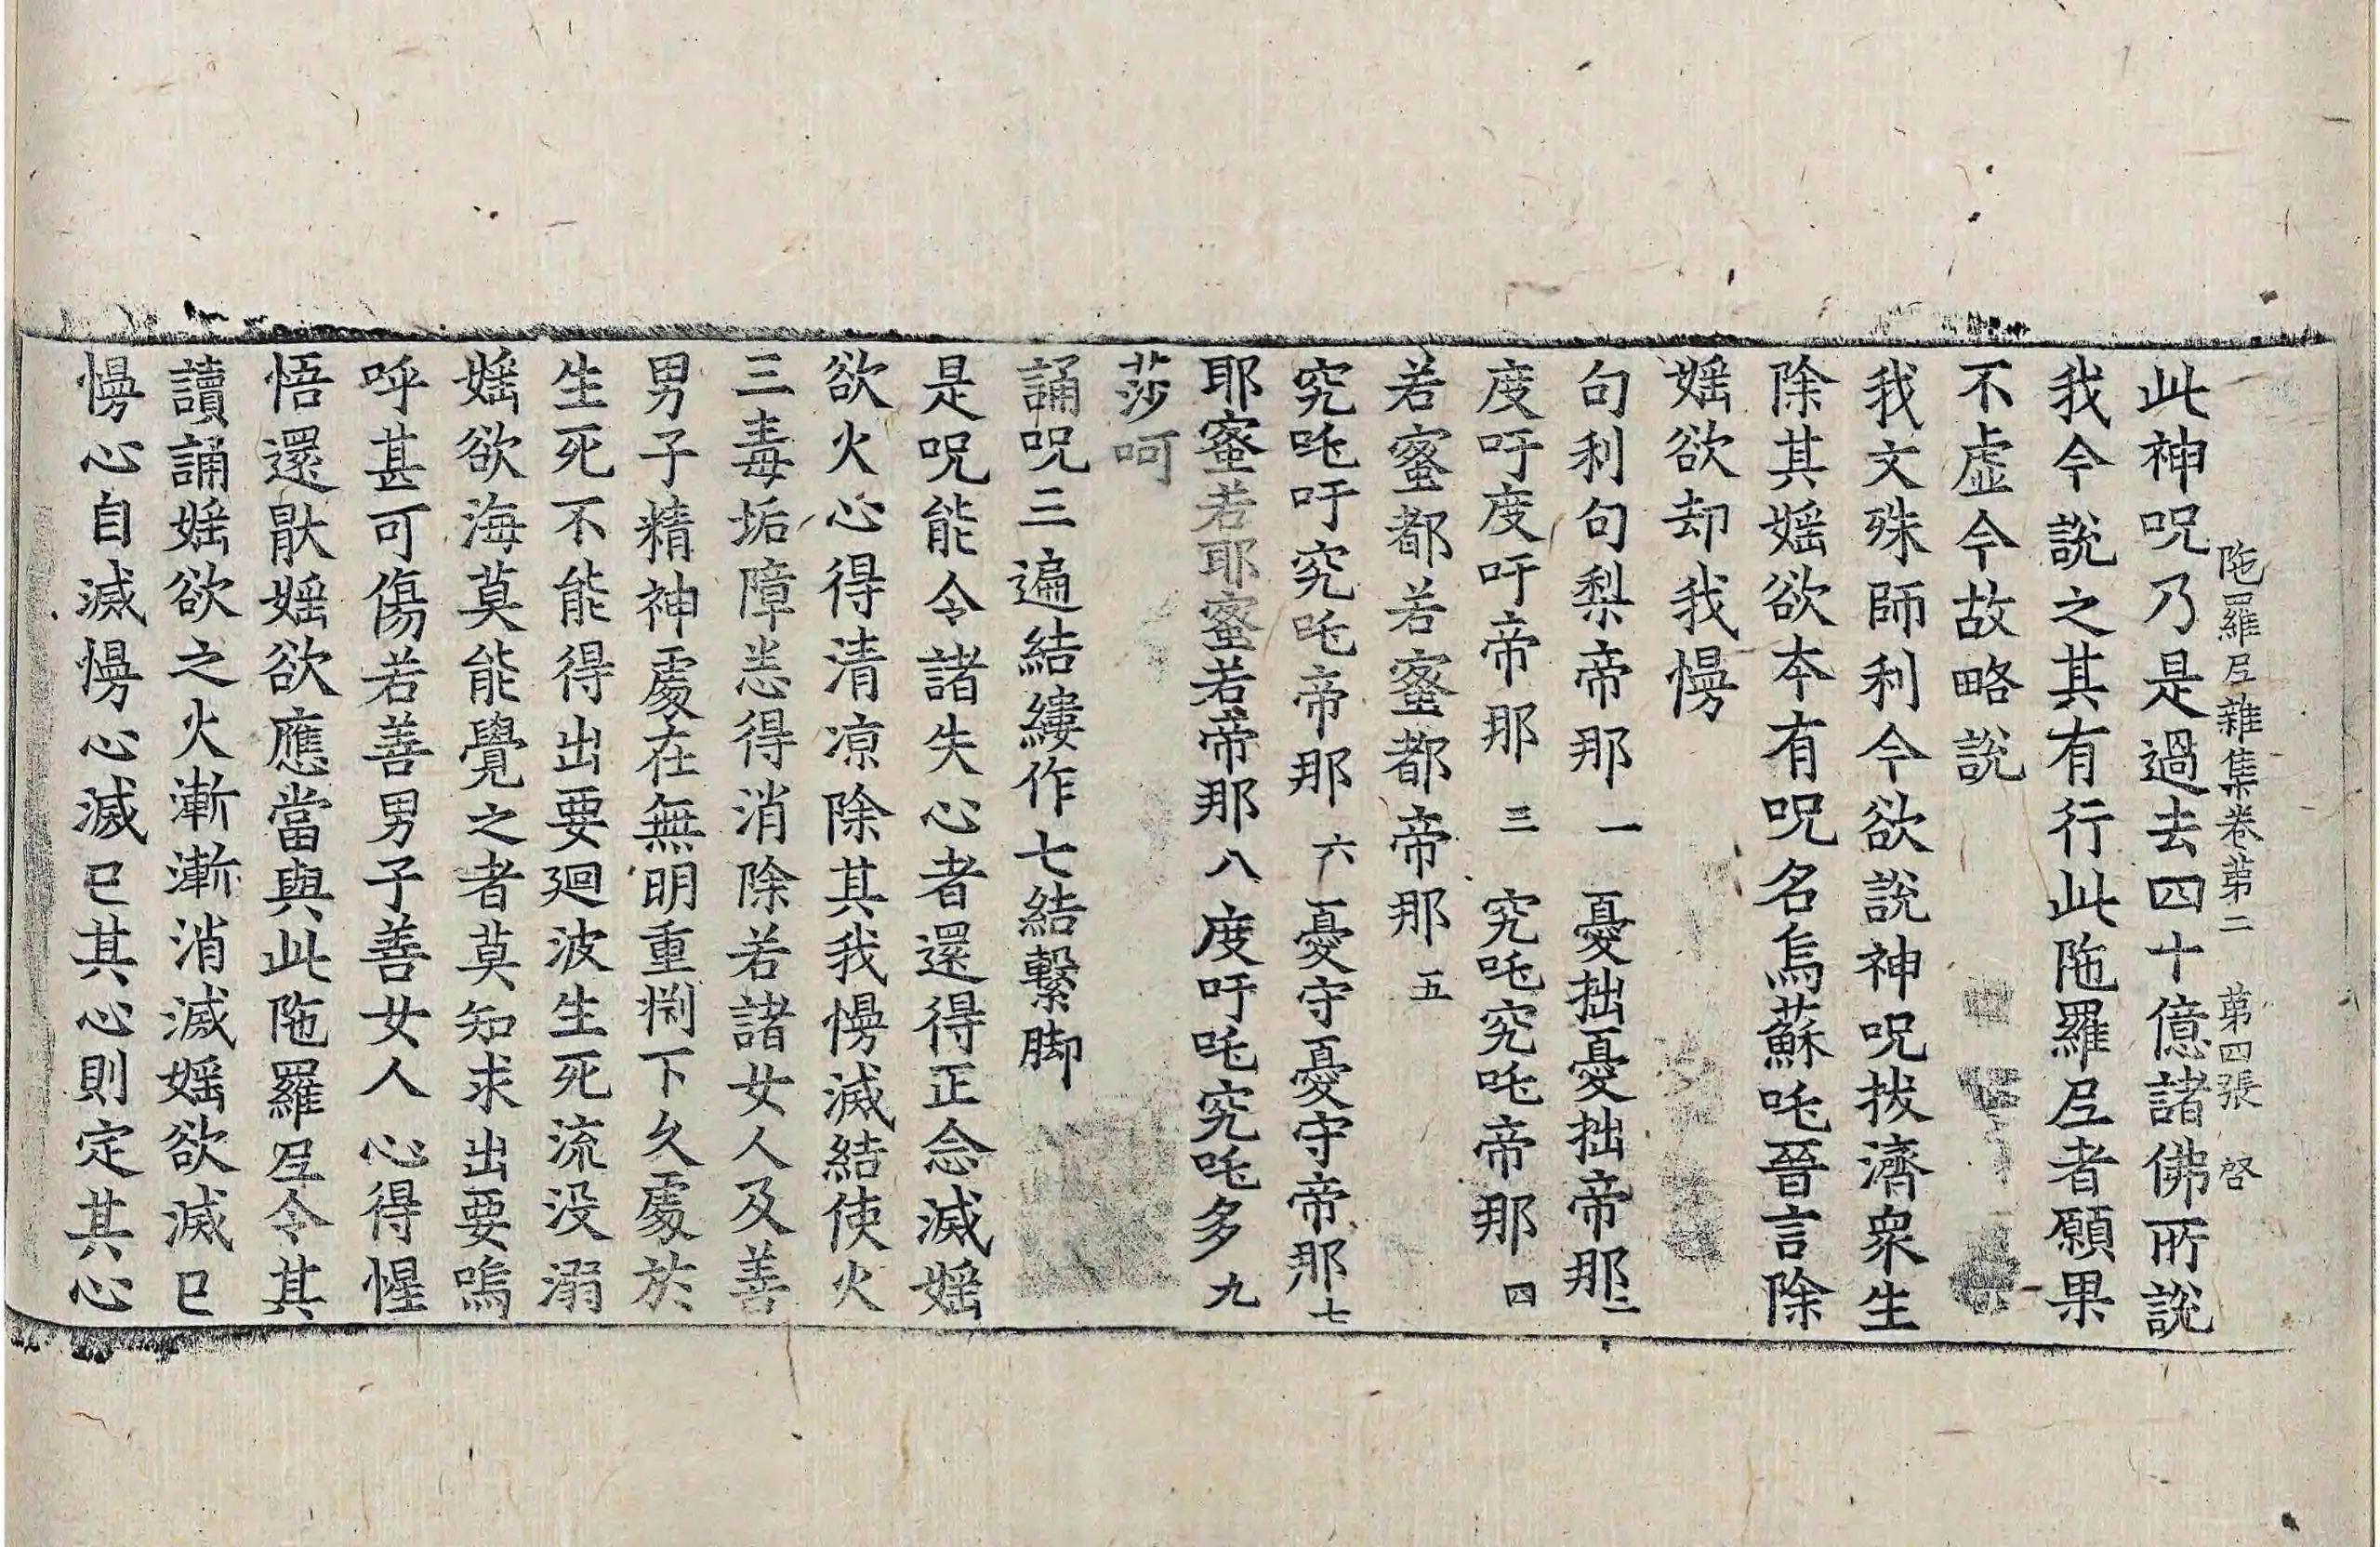 陁羅尼雜集卷苐二 苐四張 啓
此神呪乃是過去四十億諸佛所說
我今說之其有行此陁羅尼者願果
不虛今故略說
我文殊師利今欲說神呪拔濟衆生
除其婬欲本有呪名烏蘇吒晉言除
婬欲却我慢
句利句梨帝那一憂拙憂拙帝那二
度吁度吁帝那三究吒究吒帝那四
若蜜都若蜜都帝那五
究吒吁究吒帝那六憂守憂守帝那七
耶蜜若耶蜜若帝那八度吁吒究吒多九
莎呵
誦呪三遍結縷作七結繫脚
是呪能令諸失心者還得正念滅婬
欲火心得清凉除其我慢滅結使火
三毒垢障悉得消除若諸女人及善
男子精神處在無明重㓮下久處於
生死不能得出要迴波生死流没溺
婬欲海莫能覺之者莫知求出要嗚
呼甚可傷若善男子善女人心得惺
悟還猒婬欲應當與此陁羅尼令其
讀誦婬欲之火漸漸消滅婬欲滅已
慢心自滅慢心滅已其心則定其心